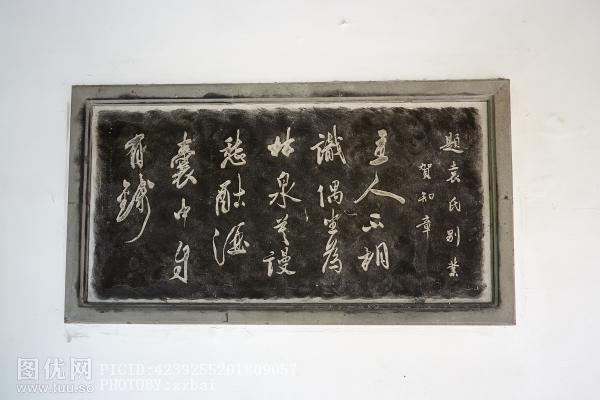 題袁氏別業
賀知章
主人不相
識偶坐為
林泉莫謾
愁酤酒
囊中自
有錢
图优网
www.tuu.so
PICID:4239255201809057
PHOTOBY:zzbai